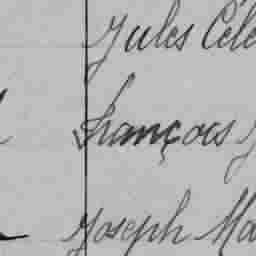 Jules Céle
François J
Joseph Ma